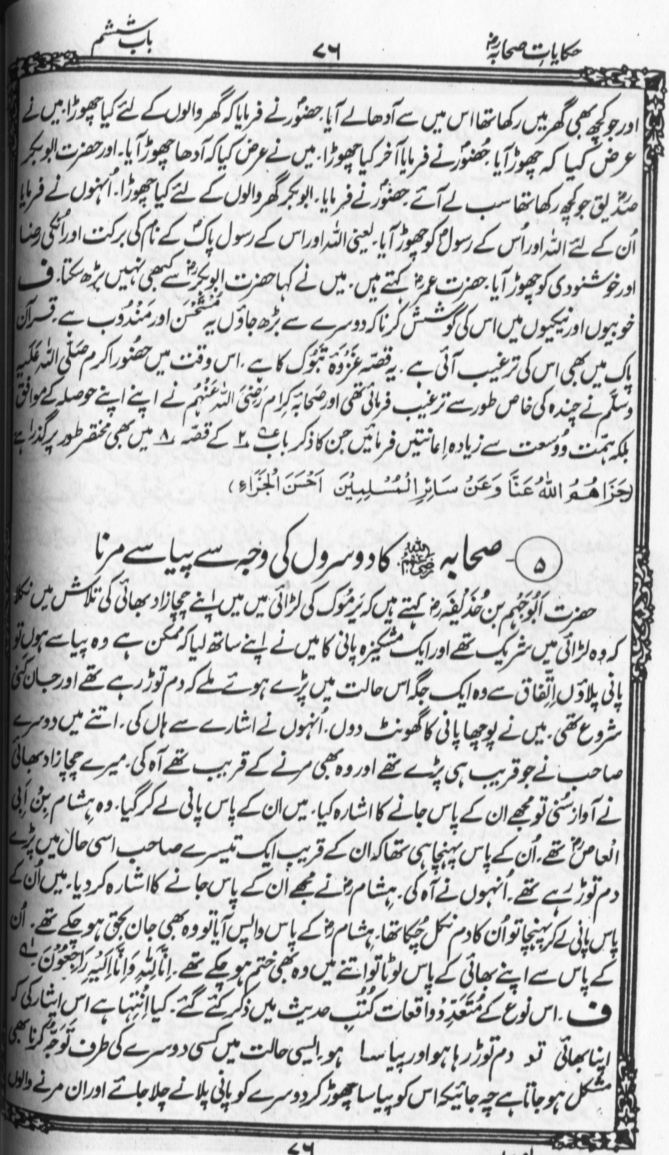 حکایاتِ صحابہؓ ۷۶ بابِ ششم
اور جو کچھ بھی گھر میں رکھا تھا اس میں سے آدھا لے آیا۔ حضورؐ نے فرمایا کہ گھر والوں کے لئے کیا چھوڑا، میں نے
عرض کیا کہ چھوڑ آیا۔ حضورؐ نے فرمایا آخر کیا چھوڑا، میں نے عرض کیا کہ آدھا چھوڑ آیا۔ اور حضرت ابوبکر
صدیقؓ جو کچھ رکھا تھا سب لے آئے۔ حضورؐ نے فرمایا۔ ابوبکر گھر والوں کے لئے کیا چھوڑا۔ اُنہوں نے فرمایا
اُن کے لئے اللہ اور اُس کے رسولؐ کو چھوڑ آیا۔ یعنی اللہ اور اس کے رسول پاکؐ کے نام کی برکت اور اُنکی رضا
اور خوشنودی کو چھوڑ آیا۔ حضرت عمرؓ کہتے ہیں۔ میں نے کہا حضرت ابوبکرؓ سے کبھی نہیں بڑھ سکتا۔ ف
خوبیوں اور نیکیوں میں اس کی کوشش کرنا کہ دوسرے سے بڑھ جاؤں یہ مُسْتَحْسَن اور مَنْدُوب ہے۔ قرآن
پاک میں بھی اس کی ترغیب آئی ہے۔ یہ قصّہ غَزْوَۂ تَبُوْک کا ہے۔ اس وقت میں حضورِ اکرم صَلَّی اللہُ عَلَیْہِ
وَسَلَّم نے چندہ کی خاص طور سے ترغیب فرمائی تھی اور صحابۂ کِرام رَضِیَ اللہُ عَنْہُم نے اپنے اپنے حوصلہ کے موافق
بلکہ ہمّت و وُسعت سے زیادہ اِعانتیں فرمائیں جن کا ذکر باب ۲ کے قصّہ ۸ میں بھی مختصر طور پر گذرا ہے
(جَزَاهُمُ اللّٰهُ عَنَّا وَعَنْ سَائِرِ الْمُسْلِمِيْنَ اَحْسَنَ الْجَزَاءِ)
۵۔ صحابہ کا دوسروں کی وجہ سے پیاسے مرنا
حضرت اَبُوجَہْم بن حُذَیفَہؓ کہتے ہیں کہ یَرْمُوک کی لڑائی میں میں اپنے چچازاد بھائی کی تلاش میں نکلا
کہ وہ لڑائی میں شریک تھے اور ایک مشکیزہ پانی کا میں نے اپنے ساتھ لیا کہ ممکن ہے وہ پیاسے ہوں تو
پانی پلاؤں اِتّفاق سے وہ ایک جگہ اس حالت میں پڑے ہوئے ملے کہ دم توڑ رہے تھے اور جان کنی
شروع تھی۔ میں نے پوچھا پانی کا گھونٹ دوں۔ انہوں نے اشارے سے ہاں کی۔ اتنے میں دوسرے
صاحب نے جو قریب ہی پڑے تھے اور وہ بھی مرنے کے قریب تھے آہ کی۔ میرے چچازاد بھائی
نے آواز سُنی تو مجھے ان کے پاس جانے کا اشارہ کیا۔ میں ان کے پاس پانی لے کر گیا۔ وہ ہشام بن اَبی
العاصؓ تھے۔ اُن کے پاس پہنچا ہی تھا کہ ان کے قریب ایک تیسرے صاحب اسی حال میں پڑے
دم توڑ رہے تھے۔ اُنہوں نے آہ کی۔ ہشامؓ نے مجھے ان کے پاس جانے کا اشارہ کر دیا۔ میں اُن کے
پاس پانی لے کر پہنچا تو اُن کا دم نکل چُکا تھا۔ ہشامؓ کے پاس واپس آیا تو وہ بھی جان بحق ہو چکے تھے۔ اُن
کے پاس سے اپنے بھائی کے پاس لوٹا تو اتنے میں وہ بھی ختم ہو چکے تھے۔ اِنَّا لِلّٰہِ وَاِنَّا اِلَیْہِ رَاجِعُوْنَ۔
ف۔ اس نوع کے مُتَعَدِّد واقعات کُتُبِ حدیث میں ذکر کئے گئے۔ کیا اِنتہا ہے اس ایثار کی کہ
اپنا بھائی تو دم توڑ رہا ہو اور پیاسا ہو۔ ایسی حالت میں کسی دوسرے کی طرف توجّہ کرنا بھی
مشکل ہو جاتا ہے چہ جائیکہ اس کو پیاسا چھوڑ کر دوسرے کو پانی پلانے چلا جائے اور ان مرنے والوں
۷۶